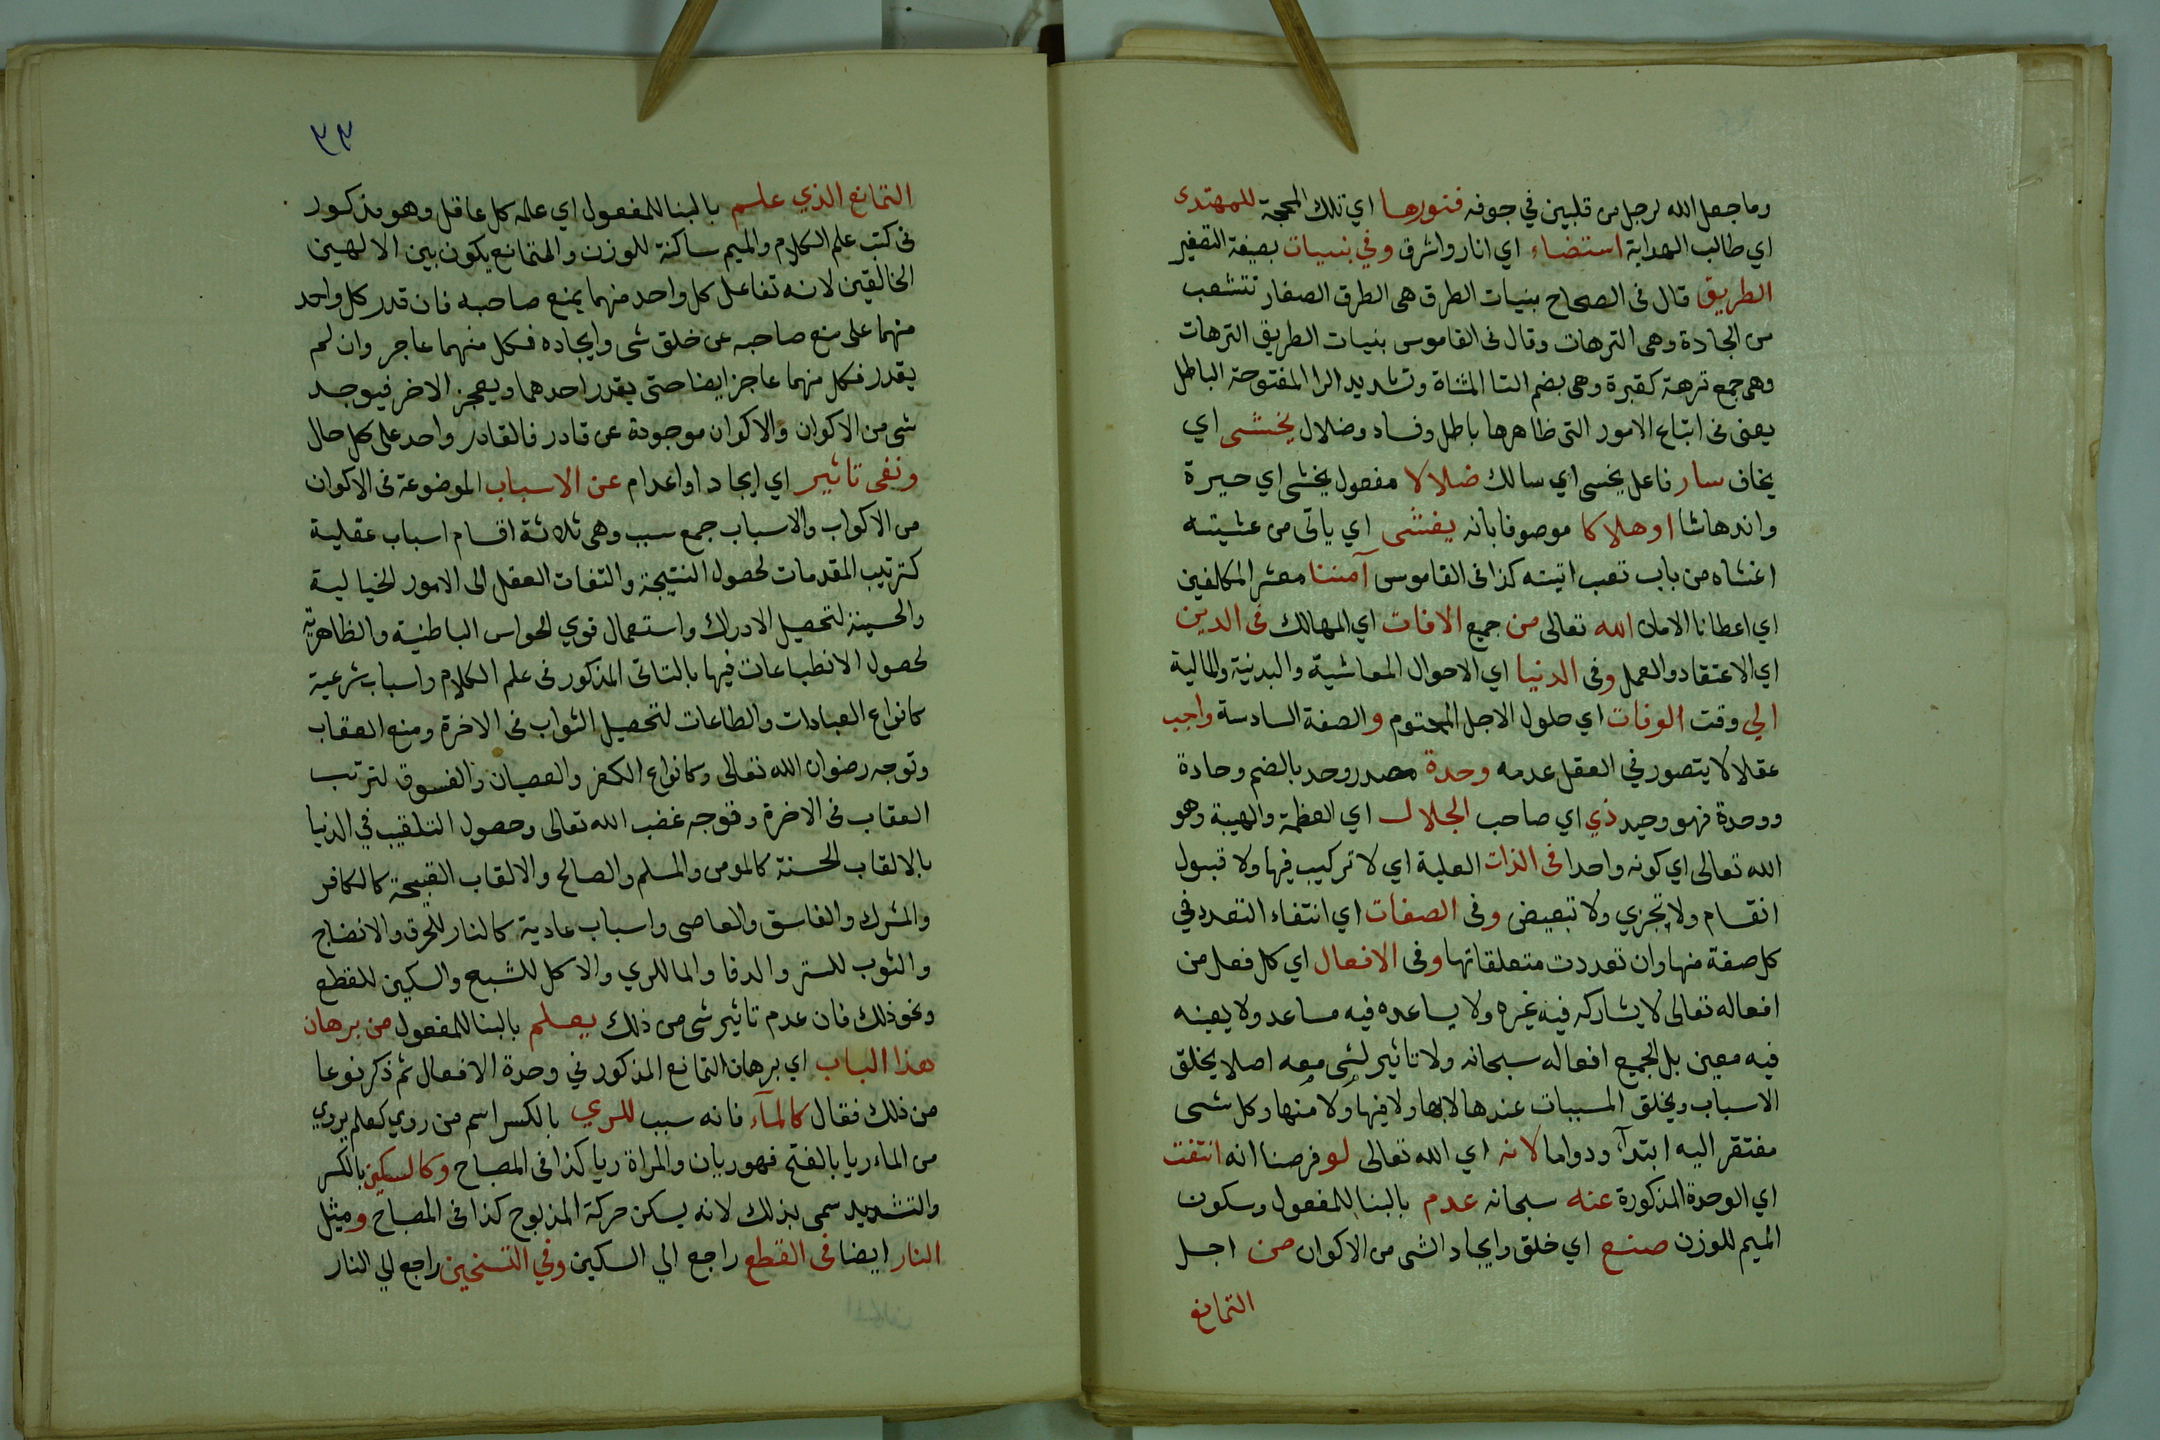 وما جعل الله لرجل من قلبين في جوفه فنورها اي تلك المحجة للمهتدى
اي طالب الهداية استضاء اي انار واشرق وفي بنيات بصيغة التصغير
الطريق قال فى الصحاح بنيات الطرق هى الطرق الصغار تتشعب
من الجادة وهى الترهات وقال فى القاموس بنيات الطريق الترهات
وهى جمع ترهة كقبرة وهى بضم التا المثناة وتشديد الرا المفتوحة الباطل
يعنى فى اتباع الامور التى ظاهرها باطل وفساد وضلال يخشى اي
يخاف سار فاعل يخشى اي سالك ضلالا مفعول يخشى اي حيرة
واندهاشا او هلاكا موصوفا بانه يغشى اي ياتى من غشيته
اغشاه من باب تعب اتيته كذا فى القاموس آمننا معشر المكلفين
اي اعطانا الامان الله تعالى من جميع الافات اي المهالك فى الدين
اي الاعتقاد والعمل وفى الدنيا اي الاحوال المعاشية والبدنية والمالية
الي وقت الوفات اي حلول الاجل المحتوم والصفة السادسة واجب
عقلا لا يتصور في العقل عدمه وحدة مصدر وحد بالضم وحادة
ووحدة فهو وحيد ذي اي صاحب الجلال اي العظمة والهيبة وهو
الله تعالى اي كونه واحدا فى الذات العلية اي لا تركيب فيها ولا قبول
انقسام ولا تجزي ولا تبعيض وفى الصفات اي انتفاء التعدد في
كل صفة منها وان تعددت متعلقاتها وفى الافعال اي كل فعل من
افعاله تعالى لا يشاركه فيه غيره ولا يساعده فيه مساعد ولا يعينه
فيه معين بل الجميع افعاله سبحانه ولا تاثير لشى معه اصلا يخلق
الاسباب ويخلق المسببات عندها لا بها ولا فيها ولا منها وكل شى
مفتقر اليه ابتدآء ودواما لانه اي الله تعالى لو فرضنا انه انتفت
اي الوحدة المذكورة عنه سبحانه عدم بالبنا للمفعول وسكون
الميم للوزن صنع اي خلق وايجاد الشى من الاكوان من اجل
التمانع
٣٣
التمانع الذي علم بالبنا للمفعول اي علمه كل عاقل وهو مذكور
فى كتب علم الكلام والميم ساكنة للوزن والتمانع يكون بين الالهين
الخالقين لانه تفاعل كل واحد منهما يمنع صاحبه فان قدر كل واحد
منهما على منع صاحبه عن خلق شى وايجاده فكل منهما عاجز وان لم
يقدر فكل منهما عاجز ايضا حتى يقدر احدهما ويعجز الاخر فيوجد
شى من الاكوان والاكوان موجودة عن قادر فالقادر واحد على كل حال
ونفى تاثير اي ايجاد او اعدام عن الاسباب الموضوعة فى الاكوان
من الاكواب والاسباب جمع سبب وهى ثلاثة اقسام اسباب عقلية
كترتيب المقدمات لحصول النتيجة والتفات العقل الى الامور الخيالية
والحسية لتحصيل الادراك واستعمال قوي الحواس الباطنية والظاهرية
لحصول الانطباعات فيها بالتاتى المذكور فى علم الكلام واسباب شرعية
كانواع العبادات والطاعات لتحصيل الثواب فى الاخرة ومنع العقاب
وتوجه رضوان الله تعالى وكانواع الكفر والعصيان والفسوق لترتب
العقاب فى الاخرة وتوجه غضب الله تعالى وحصول التلقيب في الدنيا
بالالقاب الحسنة كالمومن والمسلم والصالح والالقاب القبيحة كالكافر
والمشرك والفاسق والعاصى واسباب عادية كالنار للحرق والانضاج
والثوب للستر والدفا والما للري والاكل للشبع والسكين للقطع
ونحو ذلك فان عدم تاثير شى من ذلك يعلم بالبنا للمفعول من برهان
هذا الباب اي برهان التمانع المذكور في وحدة الافعال ثم ذكر نوعا
من ذلك فقال كالمآء فانه سبب للري بالكسر اسم من روي كعلم يروي
من الماء ريا بالفتح فهو ريان والمراة ريا كذا فى المصباح وكالسكين بالكسر
والتشديد سمى بذلك لانه يسكن حركة المذبوح كذا فى المصباح ومثل
النار ايضا فى القطع راجع الي السكين وفي التسخين راجع الي النار